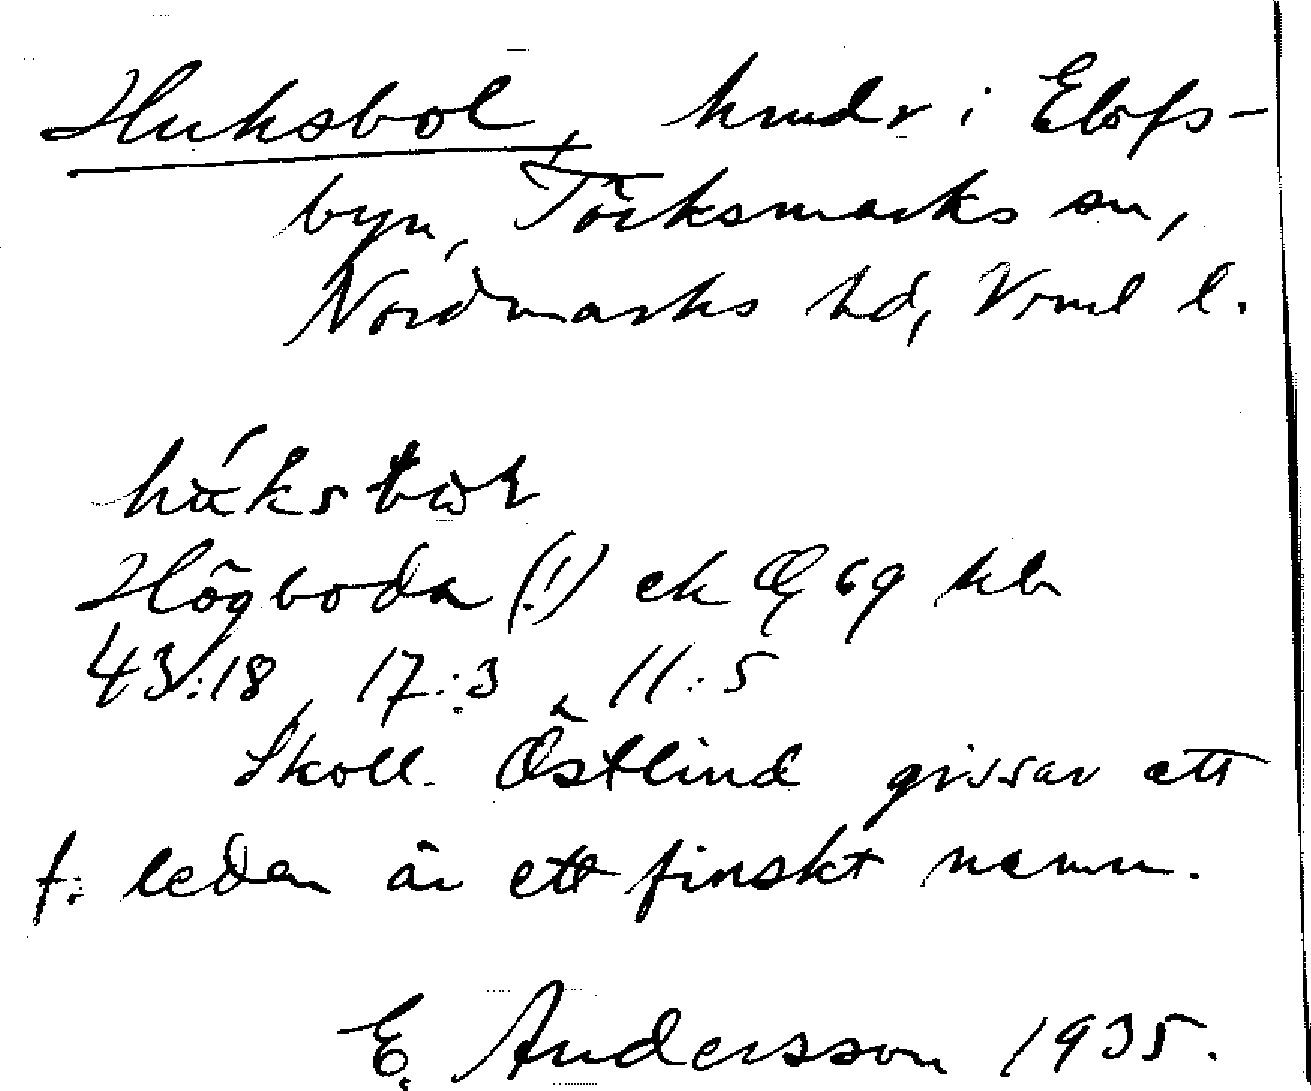 Huksbol, hmdr i Elofs-
byn, Töcksmarks sn,
Nordmarks hd, Vrml l.
Högboda (!) ek Q 69 hbr
43:18, 17:3, 11:5
Skoll. Östlind gissar att
f. leden är ett finskt namn.
E. Andersson 1935.